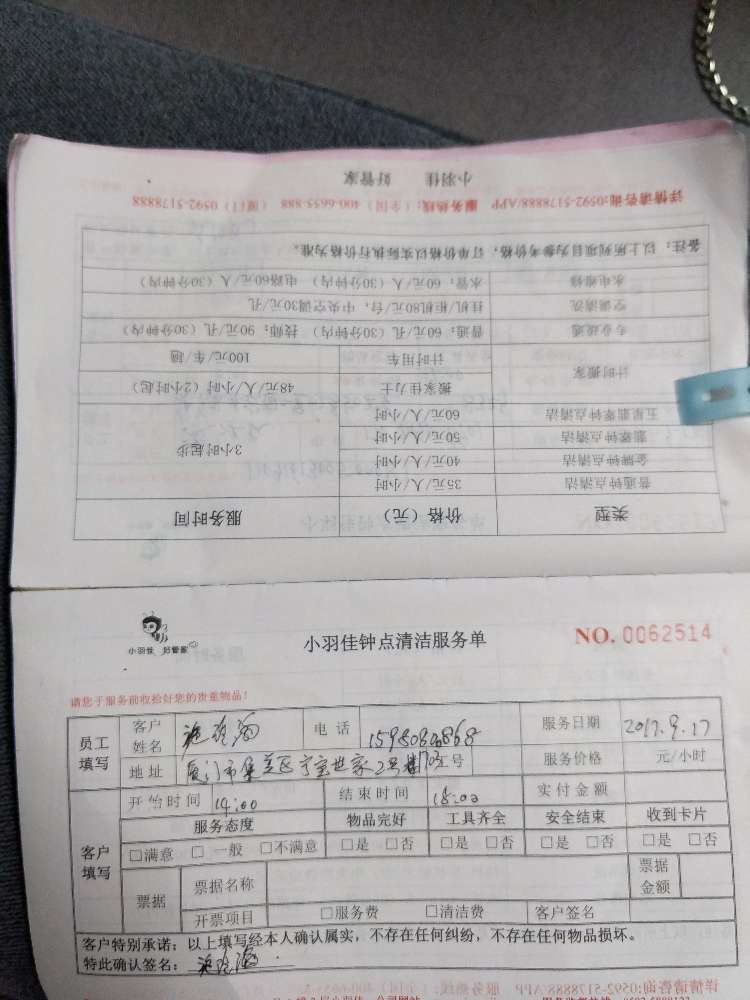 小羽佳 好管家
详情请咨询:0592-5178888/APP 服务热线:（全国）400-6655-888 （厦门）0592-5178888
备注：以上所列项目为参考价格，订单价格以实际执行价格为准。
水电维修 水管：60元/人（30分钟内） 电路60元/人（30分钟内）
空调清洗 挂机/柜机80元/台，中央空调30元/孔
专业疏通 普通：60元/孔（30分钟内） 技师：90元/孔（30分钟内）
计时搬家 计时用车 100元/车/趟
搬家佳力士 48元/人/小时（2小时起）
五星翡翠钟点清洁 60元/人/小时
翡翠钟点清洁 50元/人/小时 3小时起步
金牌钟点清洁 40元/人/小时
普通钟点清洁 35元/人/小时
类型 价格（元） 服务时间
小羽佳 好管家
小羽佳钟点清洁服务单 NO. 0062514
请您于服务前收拾好您的贵重物品！
员工填写 客户姓名 电话 服务日期 2017.9.17
地址 厦门市集美区宁宝世家2号楼703号 服务价格 元/小时
客户填写 开始时间 14:00 结束时间 18:00 实付金额
服务态度 物品完好 工具齐全 安全结束 收到卡片
□满意 □一般 □不满意 □是 □否 □是 □否 □是 □否 □是 □否
票据 票据名称 票据金额
开票项目 □服务费 □清洁费 客户签名
客户特别承诺：以上填写经本人确认属实，不存在任何纠纷，不存在任何物品损坏。
特此确认签名：
详情请咨询:0592-5178888/APP 服务热线:（全国）400-6655-888